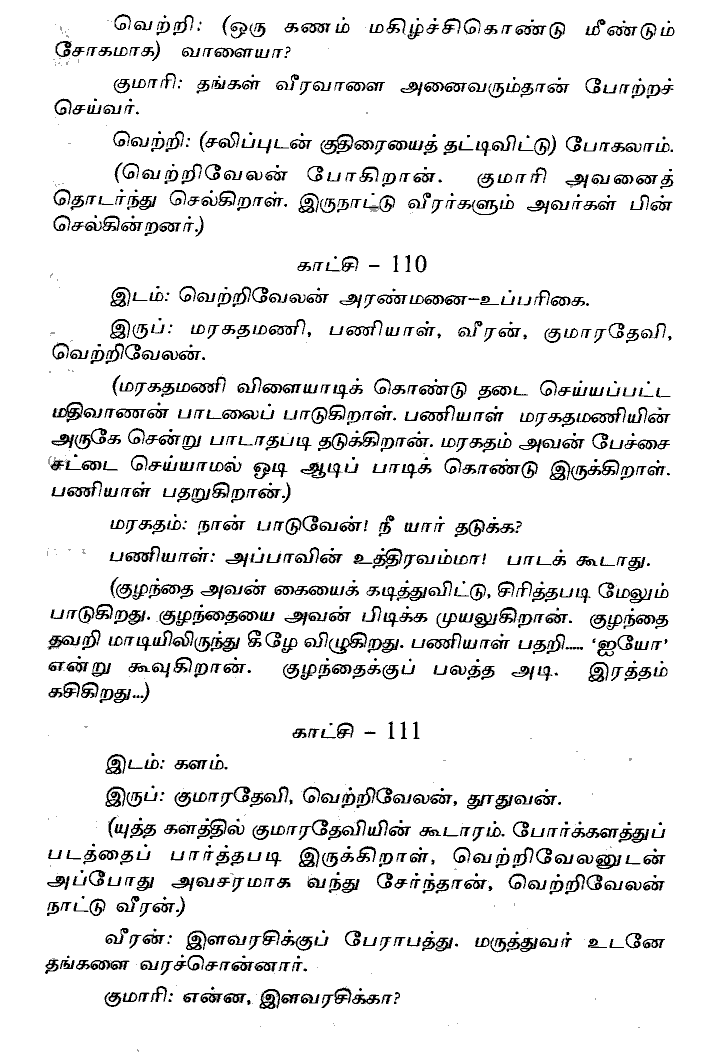 வெற்றி: (ஒரு கணம் மகிழ்ச்சிகொண்டு மீண்டும்
சோகமாக) வாளையா?
குமாரி: தங்கள் வீரவாளை அனைவரும்தான் போற்றச்
செய்வர்.
வெற்றி: (சலிப்புடன் குதிரையைத் தட்டிவிட்டு) போகலாம்.
(வெற்றிவேலன் போகிறான். குமாரி அவனைத்
தொடர்ந்து செல்கிறாள். இருநாட்டு வீரர்களும் அவர்கள் பின்
செல்கின்றனர்.)
காட்சி – 110
இடம்: வெற்றிவேலன் அரண்மனை–உப்பரிகை.
இருப்: மரகதமணி, பணியாள், வீரன், குமாரதேவி,
வெற்றிவேலன்.
(மரகதமணி விளையாடிக் கொண்டு தடை செய்யப்பட்ட
மதிவாணன் பாடலைப் பாடுகிறாள். பணியாள் மரகதமணியின்
அருகே சென்று பாடாதபடி தடுக்கிறான். மரகதம் அவன் பேச்சை
சட்டை செய்யாமல் ஓடி ஆடிப் பாடிக் கொண்டு இருக்கிறாள்.
பணியாள் பதறுகிறான்.)
மரகதம்: நான் பாடுவேன்! நீ யார் தடுக்க?
பணியாள்: அப்பாவின் உத்திரவம்மா! பாடக் கூடாது.
(குழந்தை அவன் கையைக் கடித்துவிட்டு, சிரித்தபடி மேலும்
பாடுகிறது. குழந்தையை அவன் பிடிக்க முயலுகிறான். குழந்தை
தவறி மாடியிலிருந்து கீழே விழுகிறது. பணியாள் பதறி..... ‘ஐயோ’
என்று கூவுகிறான். குழந்தைக்குப் பலத்த அடி. இரத்தம்
கசிகிறது...)
காட்சி – 111
இடம்: களம்.
இருப்: குமாரதேவி, வெற்றிவேலன், தூதுவன்.
(யுத்த களத்தில் குமாரதேவியின் கூடாரம். போர்க்களத்துப்
படத்தைப் பார்த்தபடி இருக்கிறாள், வெற்றிவேலனுடன்
அப்போது அவசரமாக வந்து சேர்ந்தான், வெற்றிவேலன்
நாட்டு வீரன்.)
வீரன்: இளவரசிக்குப் பேராபத்து. மருத்துவர் உடனே
தங்களை வரச்சொன்னார்.
குமாரி: என்ன, இளவரசிக்கா?